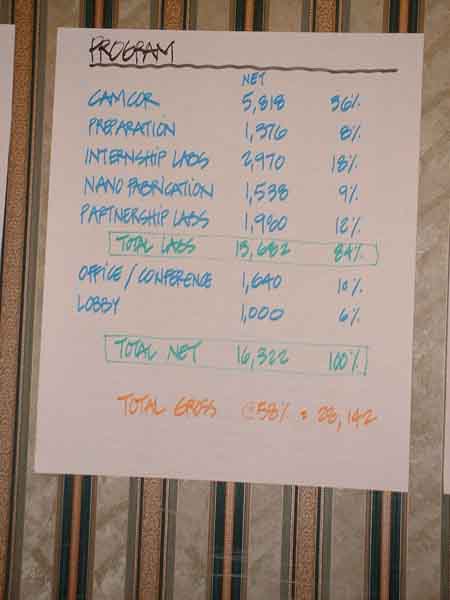 PROGRAM
NET
CAMCOR 5,818 36%
PREPARATION 1,376 8%
INTERNSHIP LABS 2,970 18%
NANO FABRICATION 1,538 9%
PARTNERSHIP LABS 1,980 12%
TOTAL LABS 13,682 84%
OFFICE / CONFERENCE 1,640 10%
LOBBY 1,000 6%
TOTAL NET 16,322 100%
TOTAL GROSS @58% = 28,142